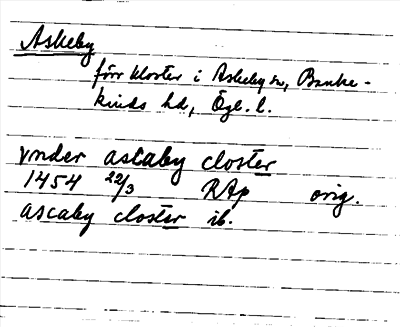 Askeby
förr kloster i Askeby sn, Banke-
kinds hd, Ögl. l.
vnder astaby closter
1454 22/3 RAp orig.
ascaby closter ib.